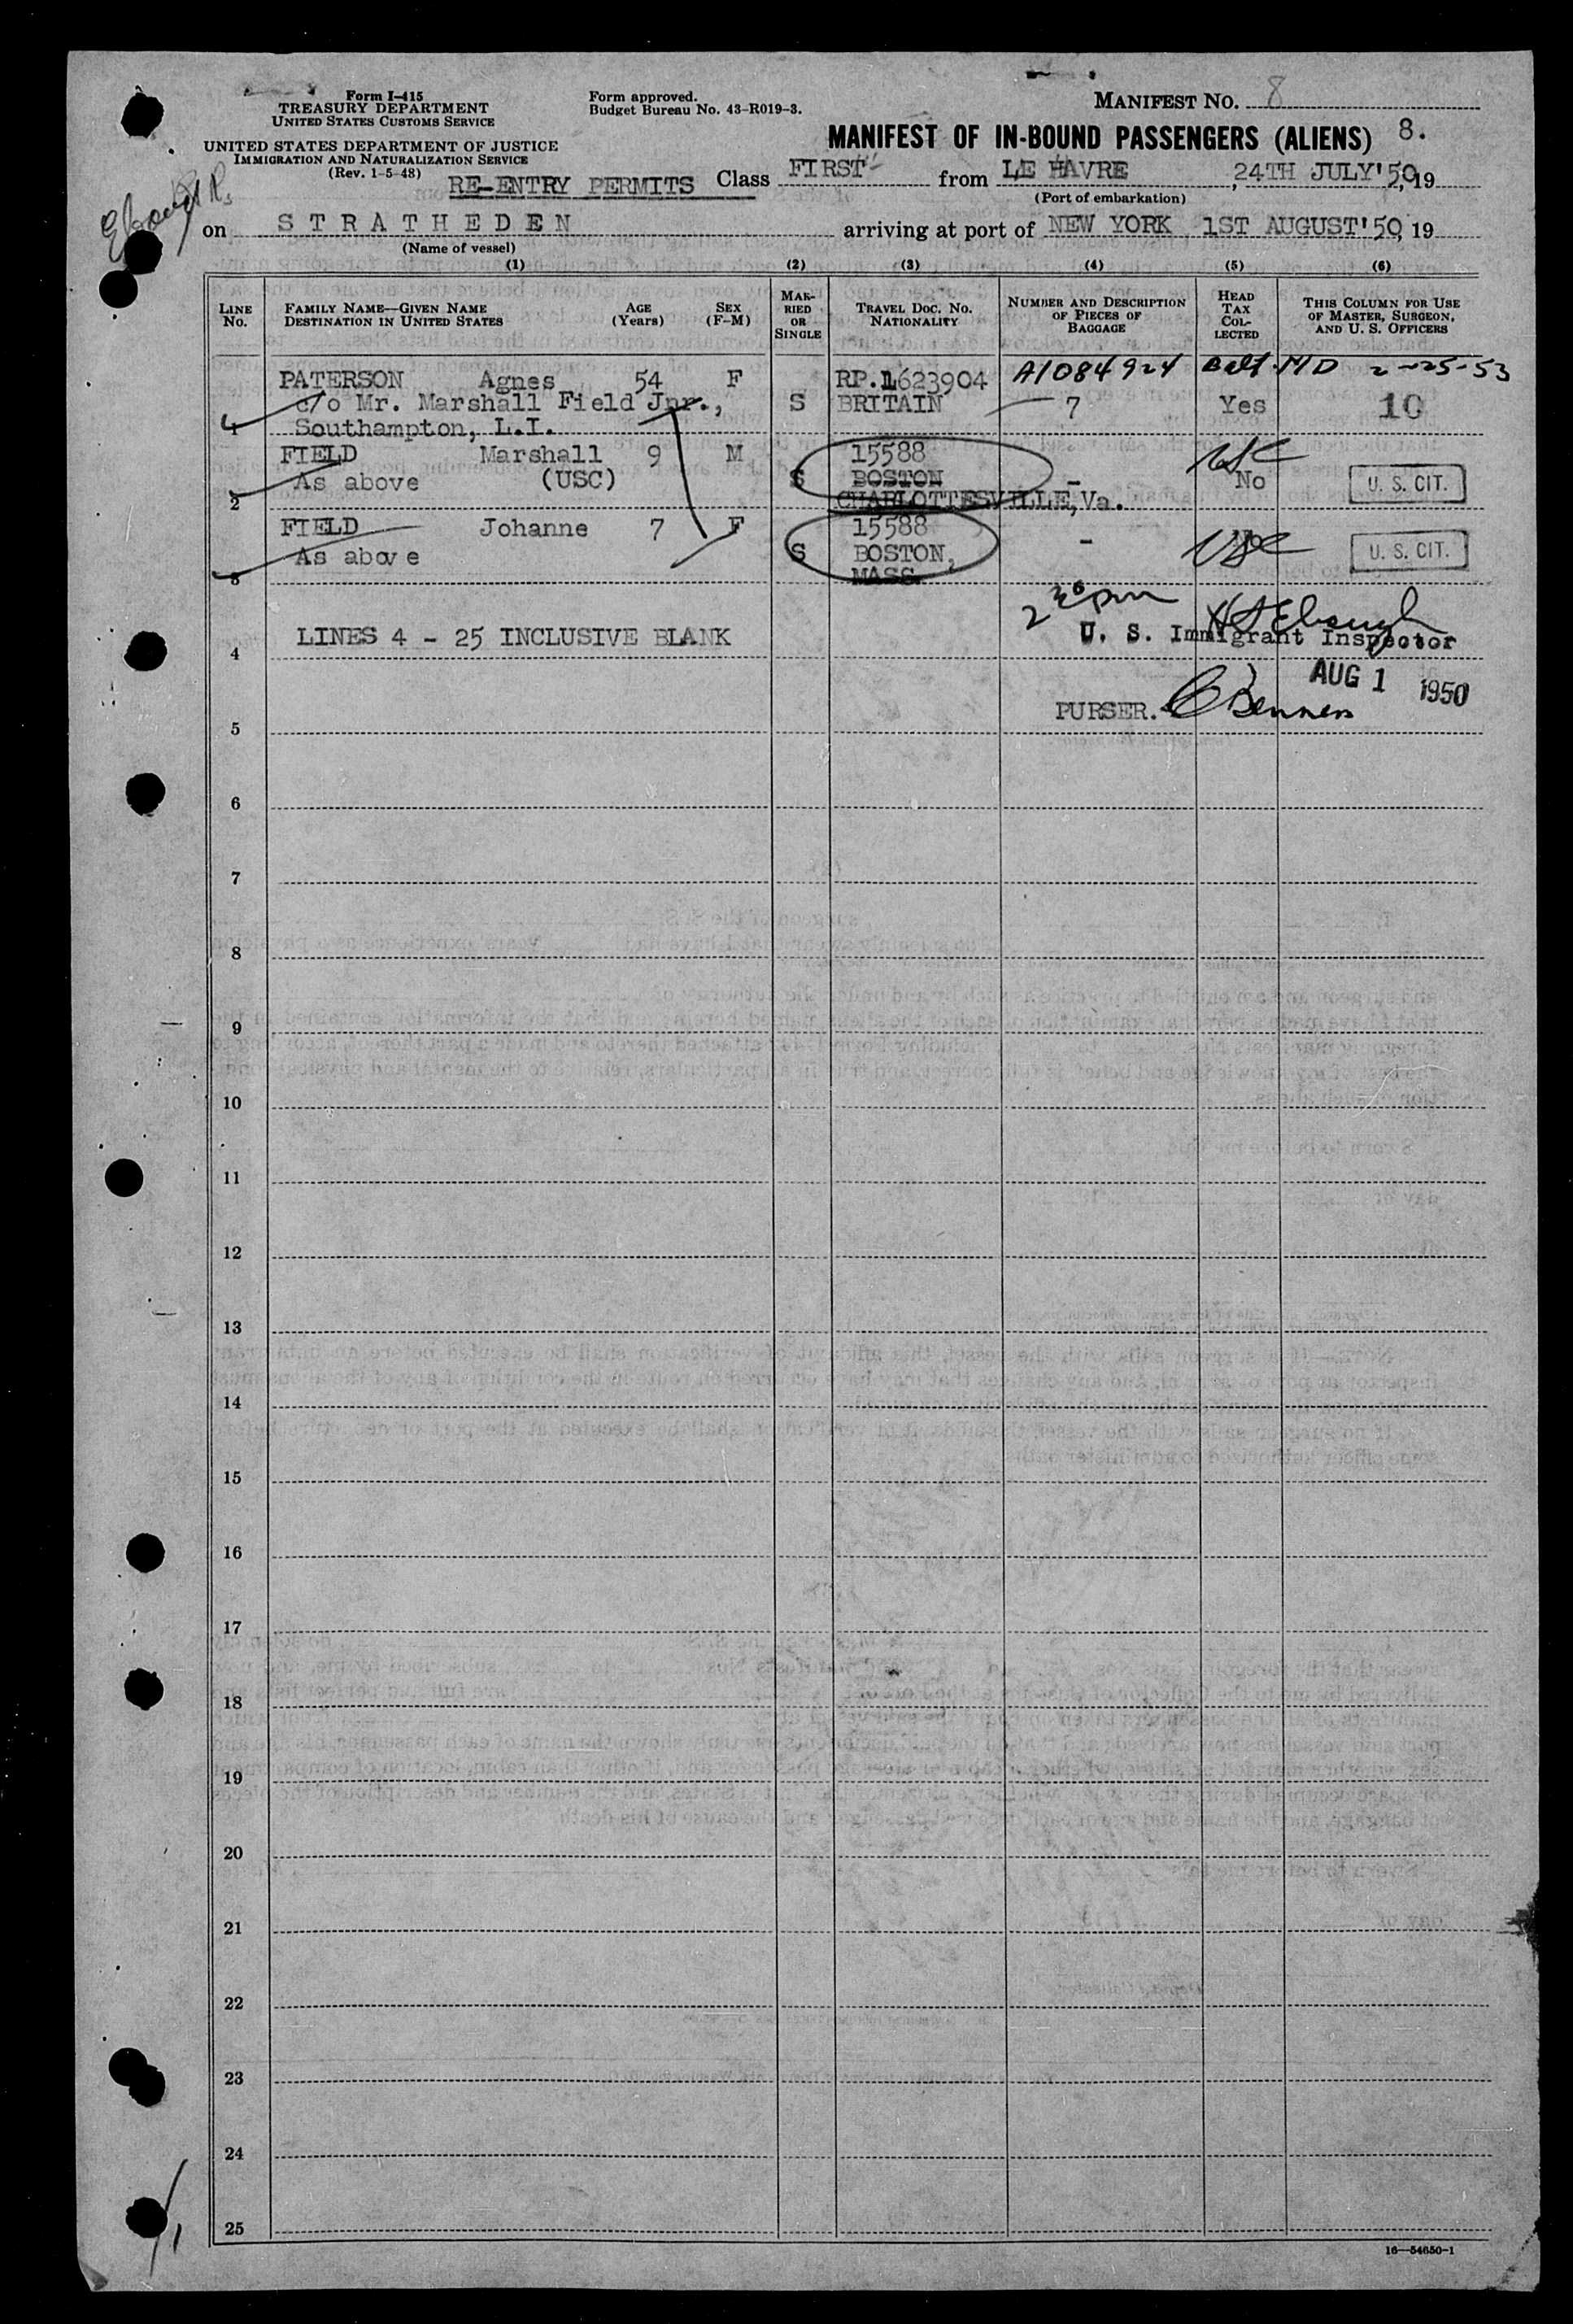 Form I-415
TREASURY DEPARTMENT
UNITED STATES CUSTOMS SERVICE
UNITED STATES DEPARTMENT OF JUSTICE
IMMIGRATION AND NATURALIZATION SERVICE
(Rev. 1-5-48)
Form approved.
Budget Bureau No. 43-R019-3.
MANIFEST NO. 8
MANIFEST OF IN-BOUND PASSENGERS (ALIENS) 8.
RE-ENTRY PERMITS Class FIRST from LE HAVRE, 24TH JULY'50, 19
(Port of embarkation)
on STRATHEDEN arriving at port of NEW YORK 1ST AUGUST'50, 19
(Name of vessel)
(1) (2) (3) (4) (5) (6)
LINE No. FAMILY NAME—GIVEN NAME DESTINATION IN UNITED STATES AGE (Years) SEX (F-M) MARRIED OR SINGLE TRAVEL DOC. NO. NATIONALITY NUMBER AND DESCRIPTION OF PIECES OF BAGGAGE HEAD TAX COLLECTED THIS COLUMN FOR USE OF MASTER, SURGEON, AND U. S. OFFICERS
PATERSON Agnes 54 F RP.1623904 A1084924 Balt. MD 2-25-53
c/o Mr. Marshall Field Jnr., S BRITAIN 7 Yes 10
1 Southampton, L.I.
FIELD Marshall 9 M 15588 USC
As above (USC) S BOSTON - No U. S. CIT.
2 CHARLOTTESVILLE, Va.
FIELD Johanne 7 F 15588
As above S BOSTON, - USC U. S. CIT.
3 MASS.
2 30 pm
LINES 4 - 25 INCLUSIVE BLANK U. S. Immigrant Inspector
4
AUG 1 1950
PURSER.
5
6
7
8
9
10
11
12
13
14
15
16
17
18
19
20
21
22
23
24
25
16—54650-1